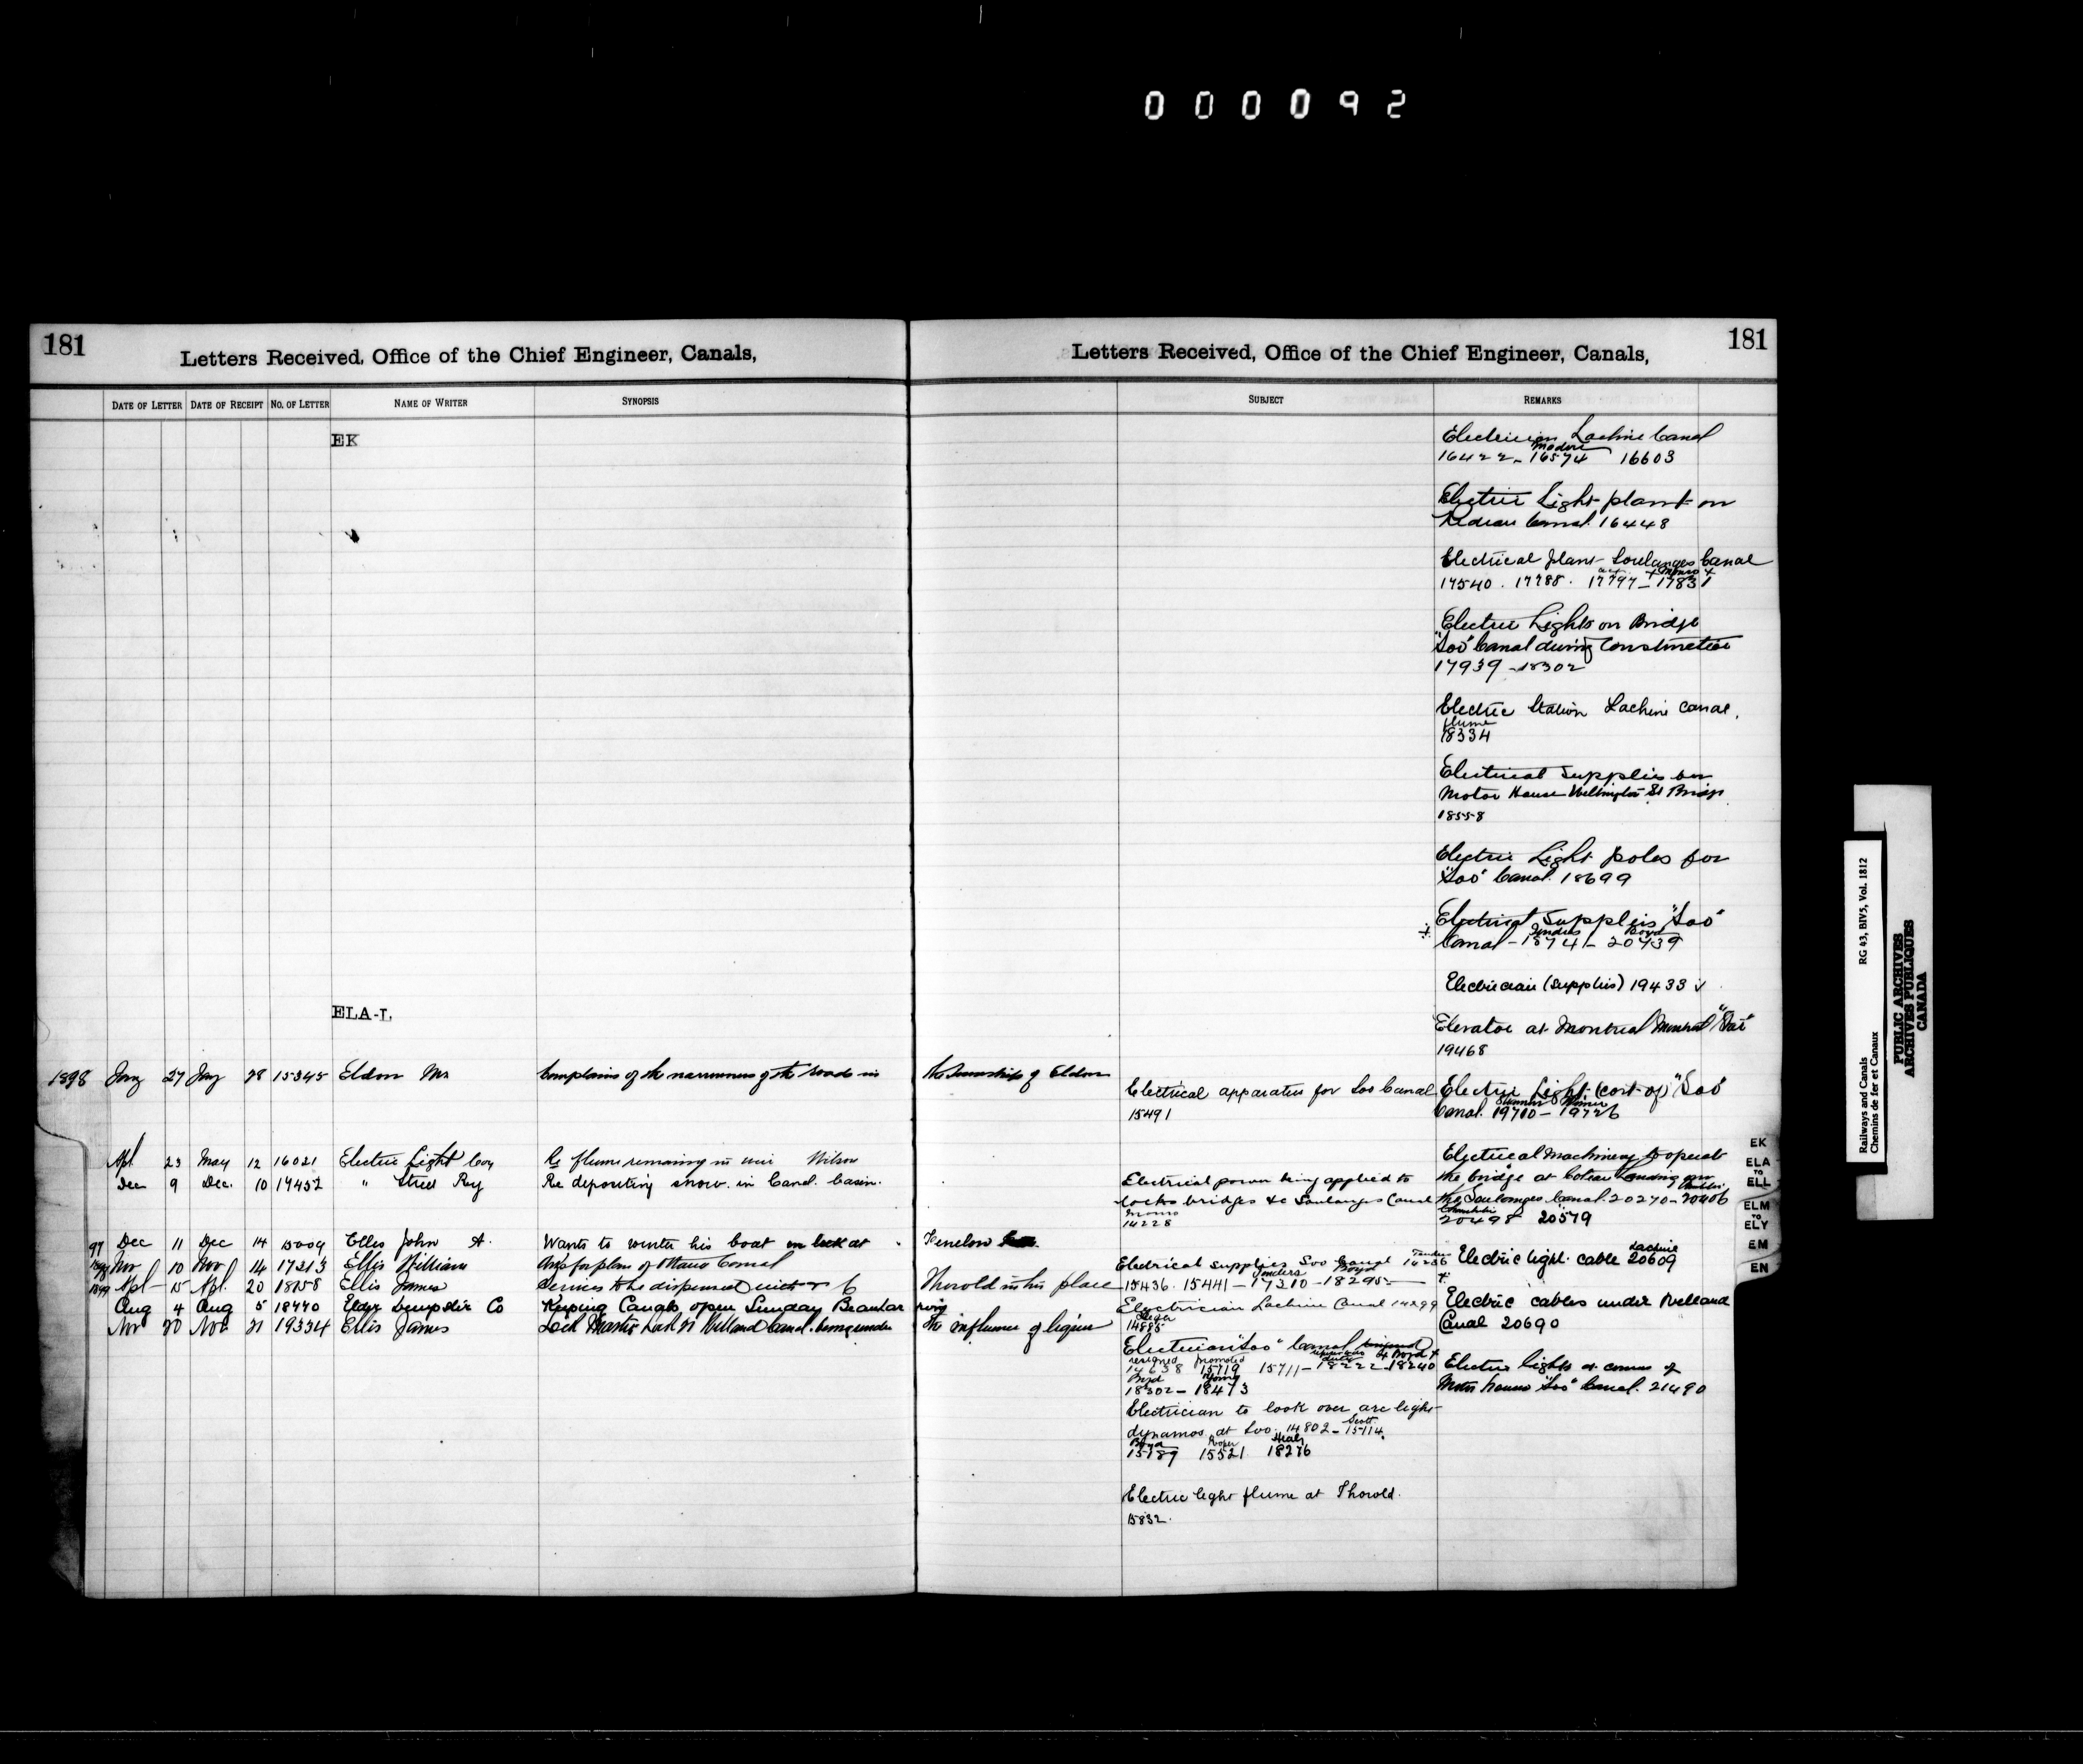 000092
181
Letters Received, Office of the Chief Engineer, Canals,
DATE OF LETTER DATE OF RECEIPT NO. OF LETTER NAME OF WRITER SYNOPSIS
EK
ELA-L
1898 Jany 27 Jany 28 15345 Eldon Mr Complains of the narrowness of the road in the Township of Eldon
Apl 23 May 12 16021 Electric Light Coy Re flume remaining in weir Wilson
Dec 9 Dec. 10 17452 " Street Ry Re depositing snow in Canal basin.
97 Dec 11 Dec 14 15009 Elles John A. Wants to winter his boat in lock at Fenelon
1898 Nov 10 Nov 14 17213 Ellis William Asks for plan of Ottawa Canal
1899 Apl 15 Apl. 20 18158 Ellis James Services to be dispensed with & Thorold in his place
Aug 4 Aug 5 18770 Elder Dempster Co Keeping Canals open Sunday
Nov 20 Nov 21 19334 Ellis James Lock Master Lock 21 Welland Canal being under the influence of liquor
181
Letters Received, Office of the Chief Engineer, Canals,
SUBJECT REMARKS
Electrical apparatus for Soo Canal
15491
Electrical power being applied to
locks bridges &c Soulanges Canal
Monro
14228
Electrical supplies Soo Canal
Tenders Boyd
15436. 15441 - 17310 - 18295
Electrician Lachine Canal 14299
14885
Electrician "Soo" Canal
resigned promoted & Boyd
14638 15719 15711 - 18222 - 18240
Boyd Young
18302 - 18473
Electrician to look over arc light
dynamos at Soo. 14802 - 15114.
Scott
Boyd
15189 15521 18276
Electric light flume at Thorold.
15832.
Electrician Lachine Canal
16422 - 16574 16603
Electric Light plant on
Rideau Canal. 16448
Electrical plant Soulanges Canal
Monro
17540. 17788. 17797 - 17831
Electric Lights on Bridge
"Soo" Canal during Construction
17939 - 18302
Electric Station Lachine Canal.
flume
18334
Electrical Supplies for
Motor House Wellington St Bridge
18558
Electric Light poles for
"Soo" Canal. 18699
Electrical Supplies "Soo"
Tenders Boyd
Canal - 1874 - 20439
Electrician (supplies) 19433
Elevator at Montreal
19468
Electric Light (cost of) "Soo"
Canal. 19710 - 19726
Electrical Machinery to operate
the bridge at Coteau Landing on
the Soulanges Canal. 20270 - 20406
20498 20579
Lachine
Electric light cable 20609
Electric cables under Welland
Canal 20690
Electric lights at corners of
Motor houses "Soo" Canal. 21490
EK
ELA
TO
ELL
ELM
TO
ELY
EM
EN
Railways and Canals RG 43, BIV5, Vol. 1812
Chemins de fer et Canaux
PUBLIC ARCHIVES
ARCHIVES PUBLIQUES
CANADA